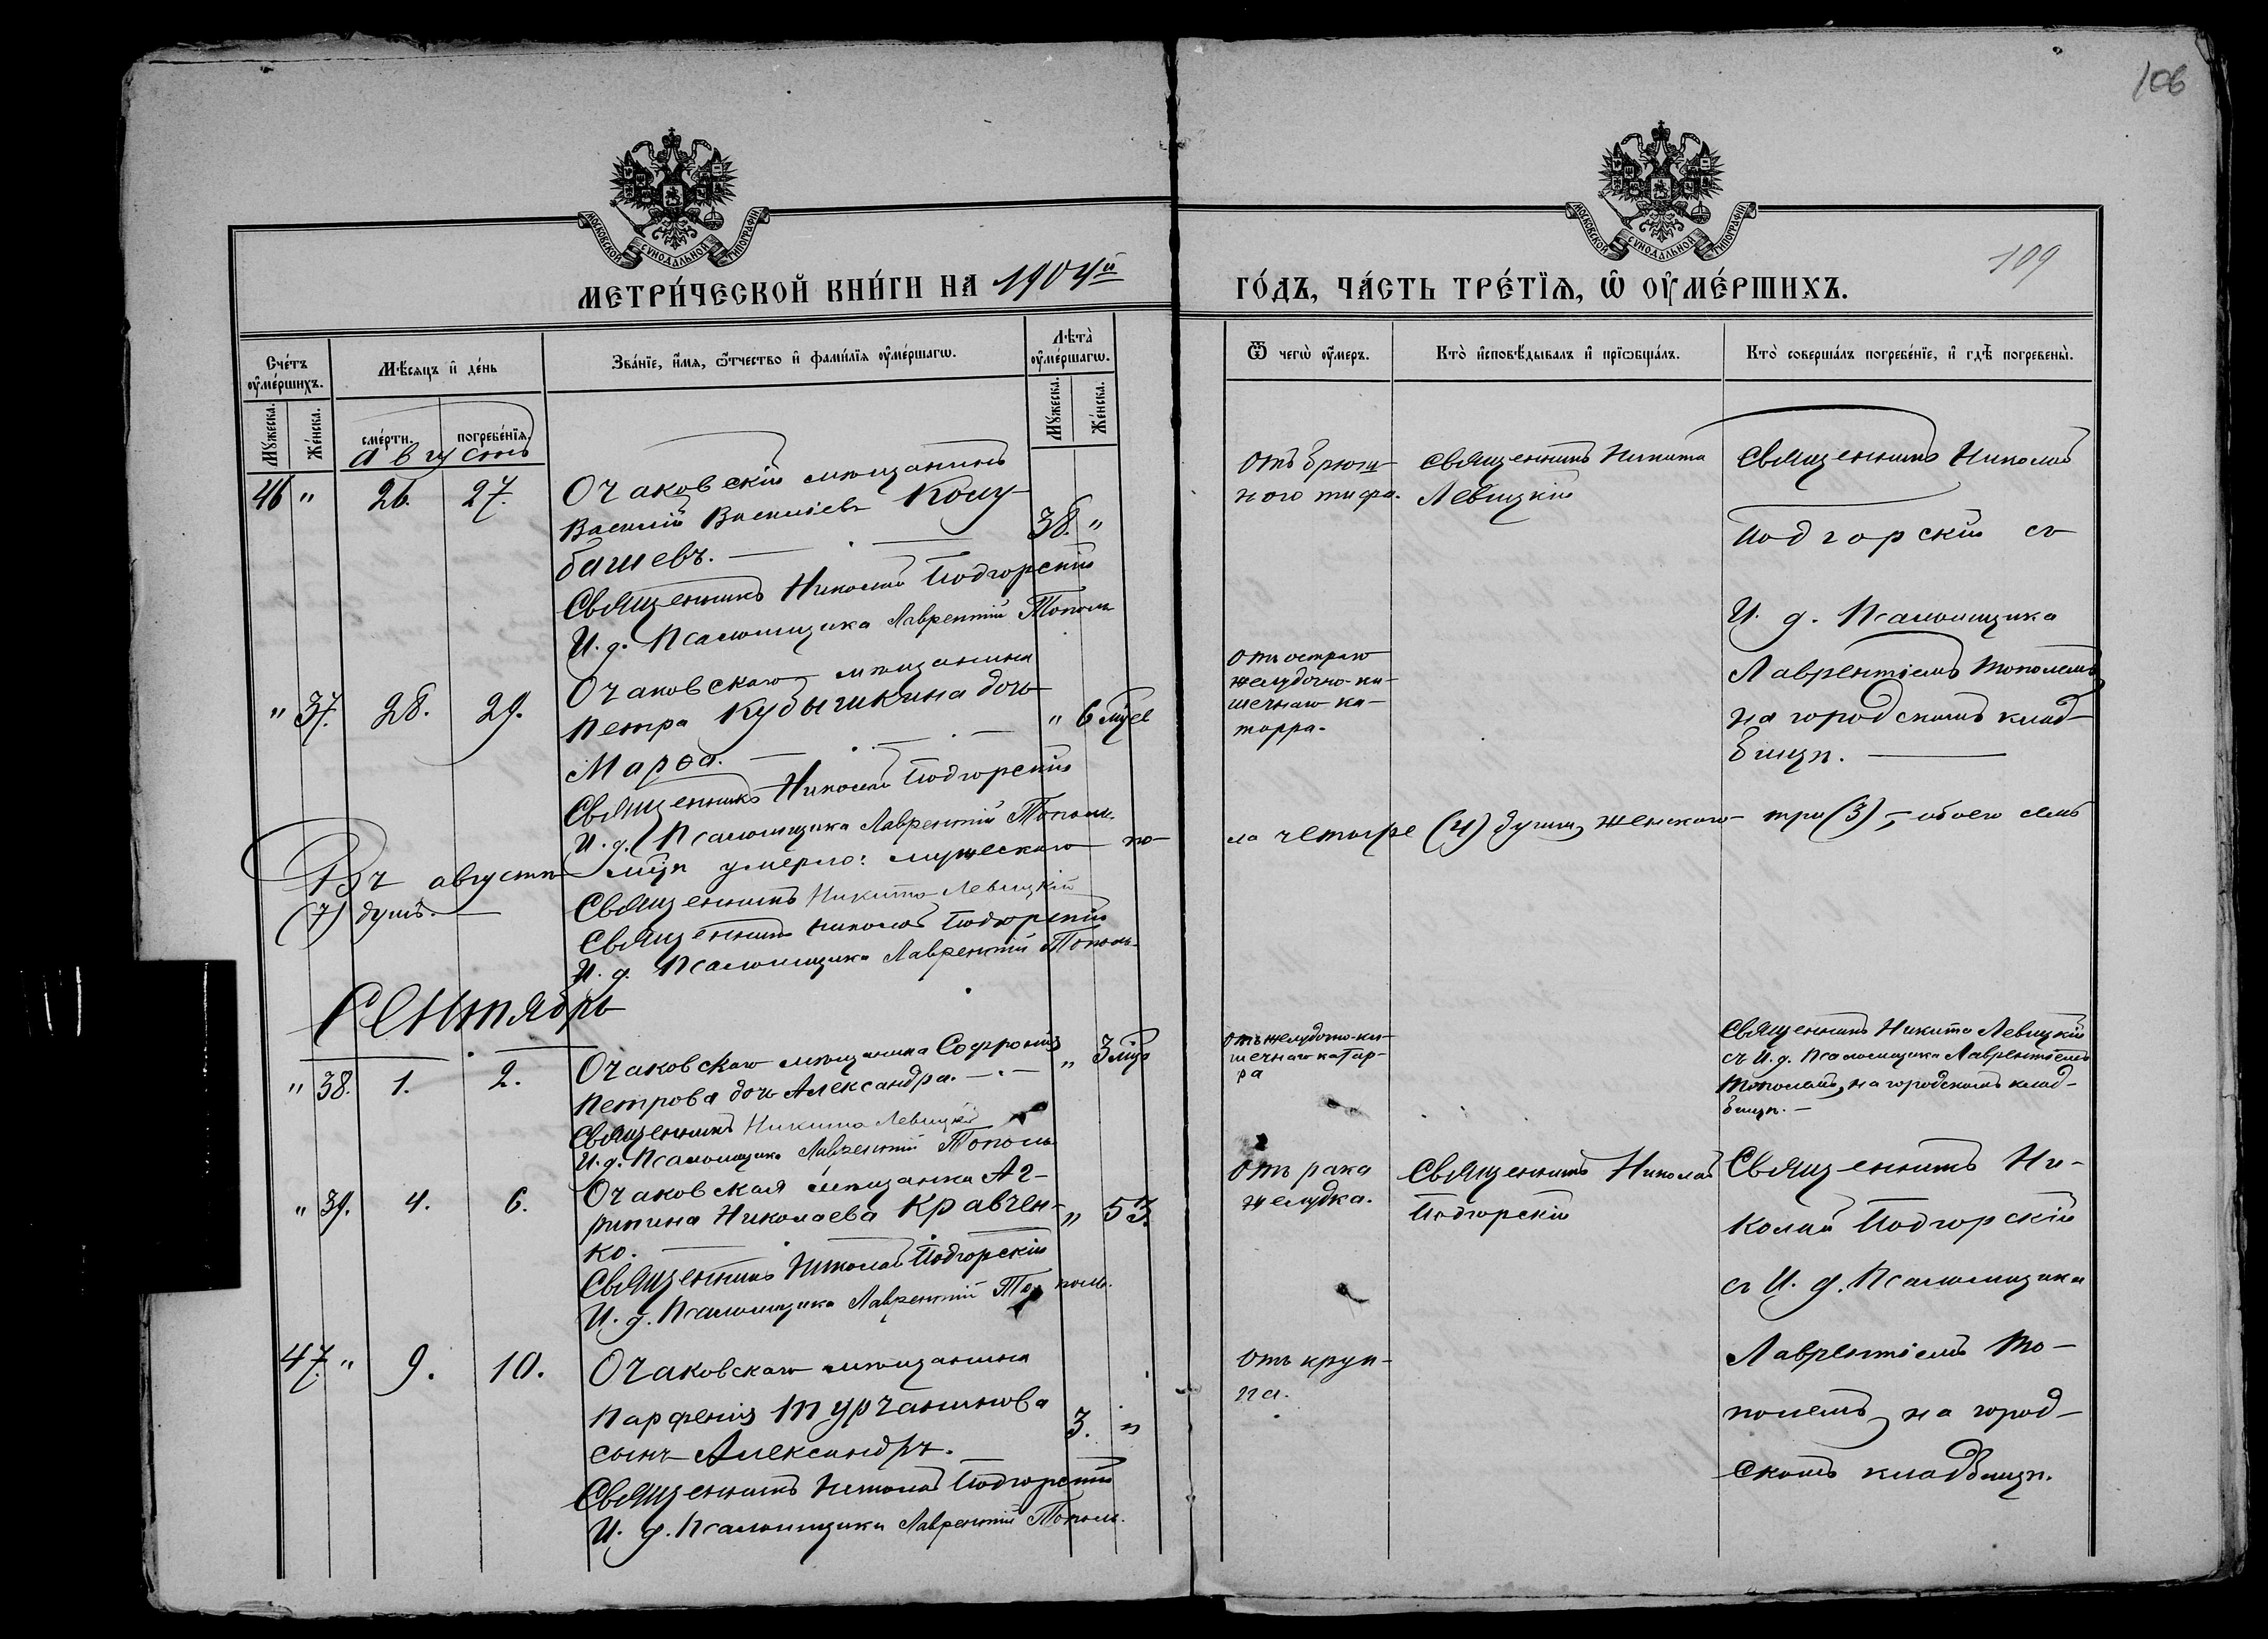 106
109
МОСКОВСКОЙ СѴНОДАЛЬНОЙ ТИПОГРАФІИ
МОСКОВСКОЙ СѴНОДАЛЬНОЙ ТИПОГРАФІИ
МЕТРИ́ЧЕСКОЙ КНИ́ГИ НА 1904й
ГО́ДЪ, ЧА́СТЬ ТРЕ́ТЇѦ, Ѡ҆ ОУ҆МЕ́РШИХЪ.
Сче́тъ оу҆ме́ршихъ.
Мѣ́сяцъ и҆ де́нь
Зва́нїе, и҆́мя, ѻ҆́тчество и҆ фами́лїя оу҆ме́ршагѡ.
Лѣта̀ оу҆ме́ршагѡ.
Ѿ чегѡ̀ оу҆́меръ.
Кто̀ и҆сповѣ́дывалъ и҆ прїѡбща́лъ.
Кто̀ соверша́лъ погребе́нїе, и҆ гдѣ̀ погребены̀.
Мꙋ́жеска.
Же́нска.
сме́рти.
погребе́нїя.
Мꙋ́жеска.
Же́нска.
Августъ
46 " 26. 27.
Очаковскій мѣщанинъ
Василій Василіевъ Коцу-
башевъ.
38. "
Священникъ Николай Подгорскій
И. д. Псаломщика Лаврентій Тополь
Отъ брюш-
ного тифа.
Священникъ Никита
Левицкій
Священникъ Николай
Подгорскій съ
И. д. Псаломщика
Лаврентіемъ Тополемъ
на городскомъ клад-
бищѣ.
" 37. 28. 29.
Очаковскаго мѣщанина
Петра Кубышкина дочь
Марѳа.
" 6 мцев
Священникъ Николай Подгорскій
И. д. Псаломщика Лаврентій Тополь.
Отъ остраго
желудочно-ки-
шечнаго ка-
тарра.
Въ августѣ мцѣ умерло: мужескаго по-
ла четыре (4) души, женскаго три (3), обоего семь
(7) душъ.
Священникъ Никита Левицкій
Священникъ Николай Подгорскій
И. д. Псаломщика Лаврентій Тополь
Сентябрь
" 38. 1. 2.
Очаковскаго мѣщанина Софронія
Петрова дочь Александра.
" 3 мца
Священникъ Никита Левицкій
И. д. Псаломщика Лаврентій Тополь
Отъ желудочно-ки-
шечнаго катар-
ра
Священникъ Никита Левицкій
съ И. д. Псаломщика Лаврентіемъ
Тополемъ, на городскомъ клад-
бищѣ.
" 39. 4. 6.
Очаковская мѣщанка Аг-
рипина Николаева Кравчен-
ко.
" 53.
Священникъ Николай Подгорскій
И. д. Псаломщика Лаврентій Тополь.
Отъ рака
желудка.
Священникъ Николай
Подгорскій
Священникъ Ни-
колай Подгорскій
съ И. д. Псаломщика
Лаврентіемъ То-
полемъ, на город-
скомъ кладбищѣ.
47. " 9. 10.
Очаковскаго мѣщанина
Парфенія Турчанинова
сынъ Александръ.
3. "
Священникъ Николай Подгорскій
И. д. Псаломщика Лаврентій Тополь.
Отъ круп-
па.